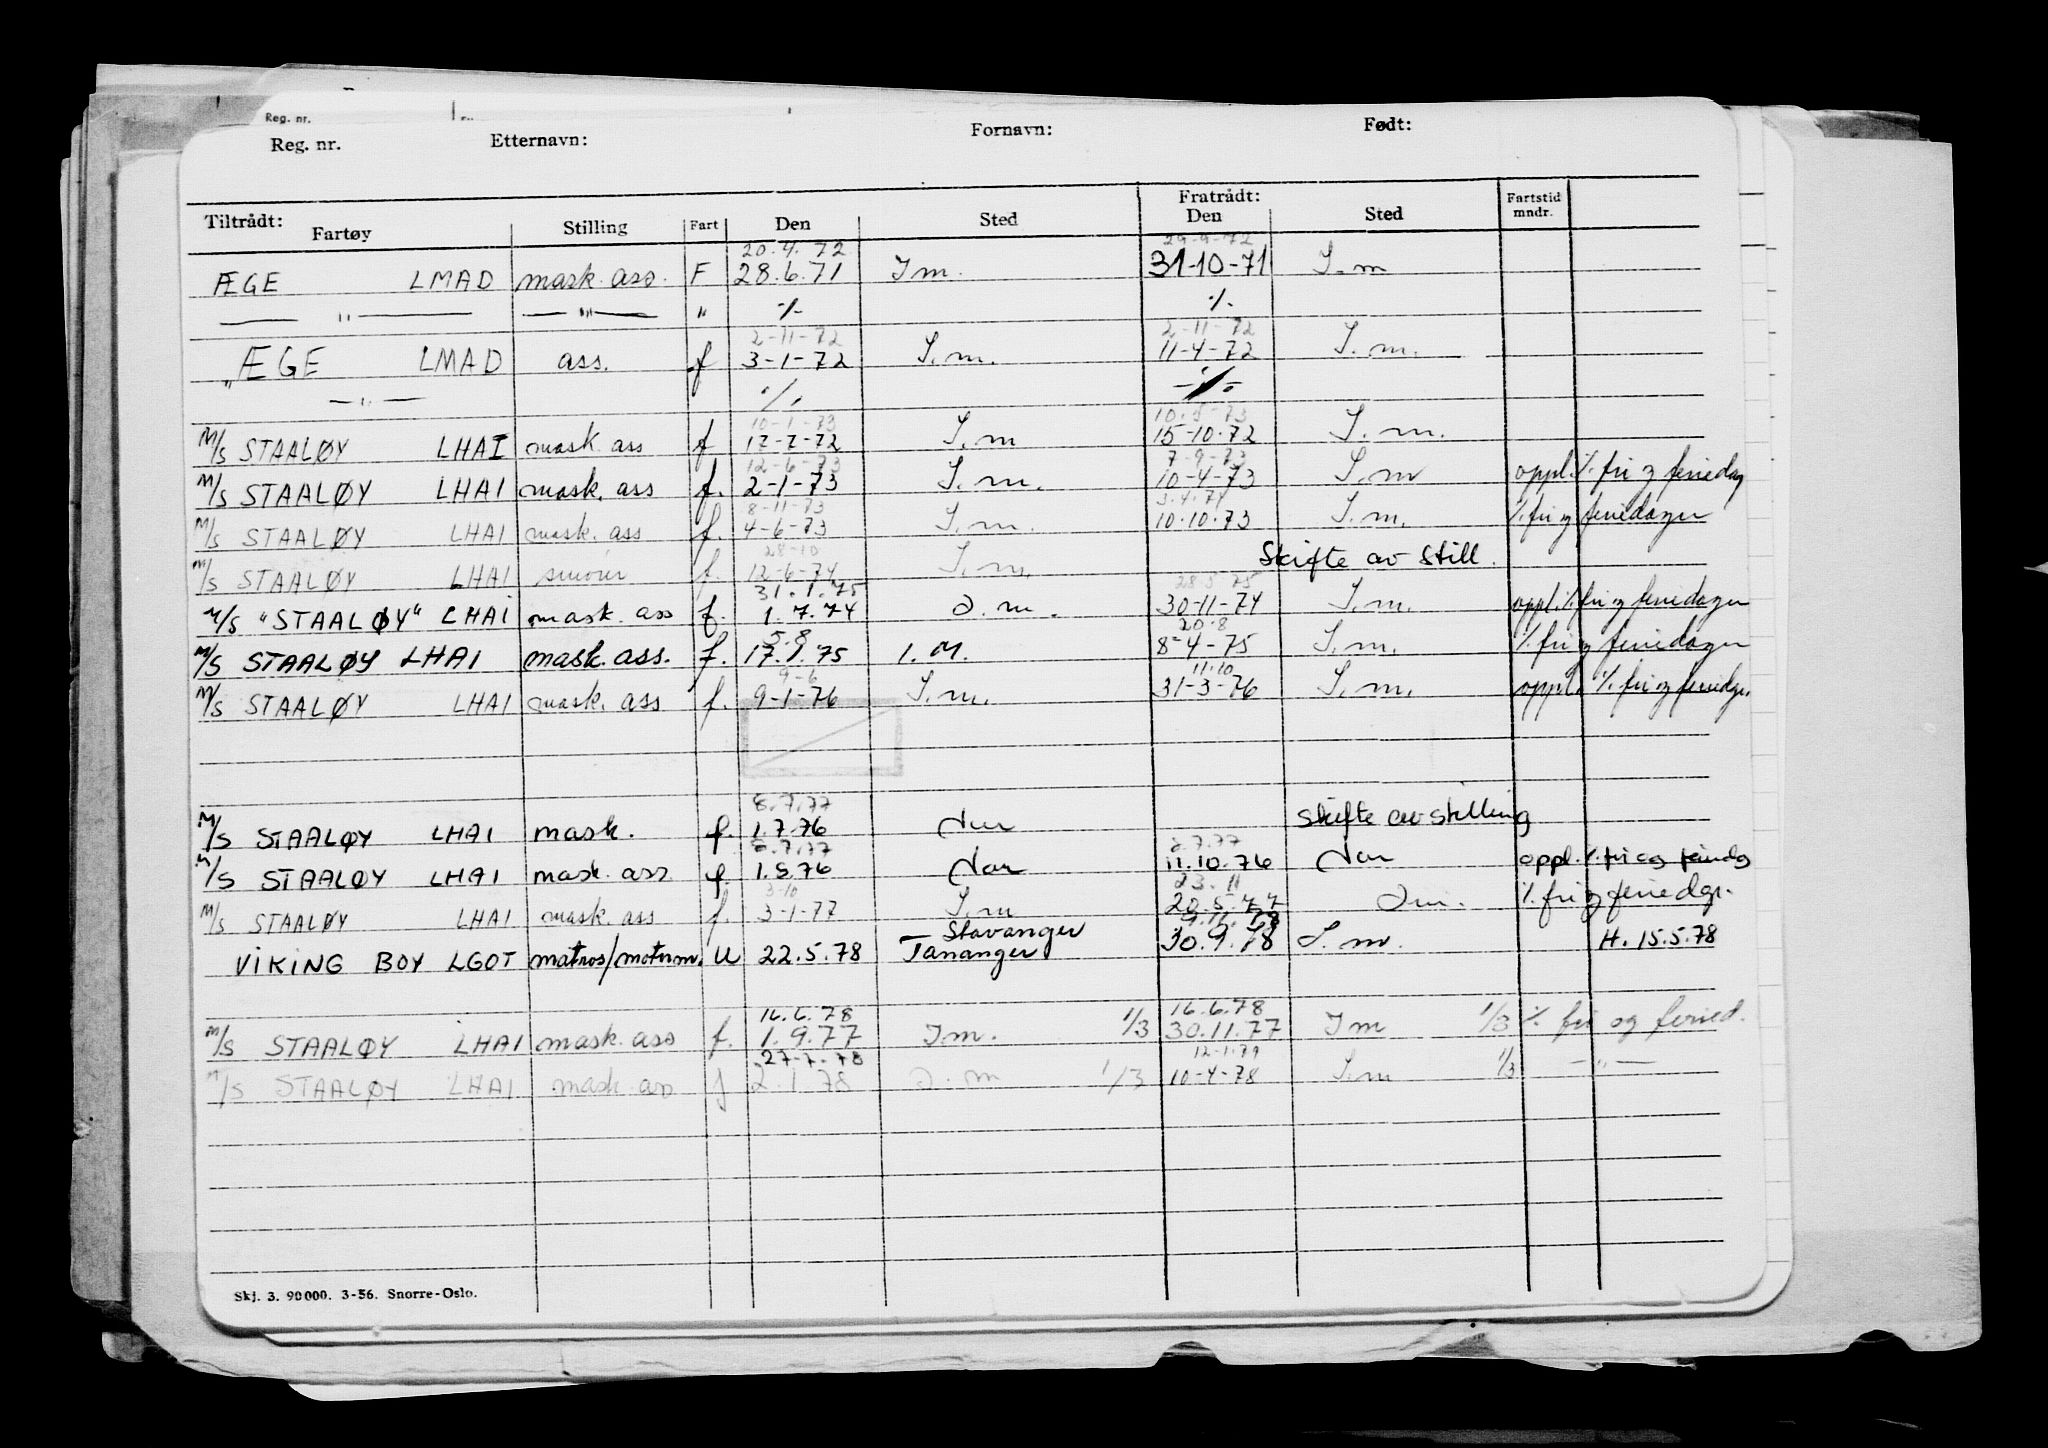 Reg. nr.
Reg. nr. Etternavn: Fornavn: Født:
Tiltrådt: Fratrådt: Fartstid
Fartøy Stilling Fart Den Sted Den Sted mndr.
20.4.72 29-9-72
ÆGE LMAD mask. ass. F 28.6.71 Im. 31-10-71 I.m
— " — — " — " ./. ./.
2-11-72 2-11-72
ÆGE LMAD ass. f 3-1-72 I.m. 11-4-72 I.m.
— " — ./. -./.-
10-1-73 10.5-73
M/S STAALØY LHAI mask ass f 17-7-72 I.m 15-10-72 I.m.
12-6-73 7-9-73
M/S STAALØY LHAI mask. ass f. 2-1-73 I.m. 10-4-73 I.m oppl. ./. fri og feriedag
8-11-73 3.4.74
M/S STAALØY LHAI mask. ass f. 4-6-73 I.m. 10.10.73 I.m. ./. fri og feriedager
28-10
M/S STAALØY LHAI smører f. 12-6-74 I.m. Skifte av still.
31.1.75 28.5.75
M/S "STAALØY" LHAI mask. ass f. 1.7.74 I.m. 30-11-74 I.m. oppl. ./. fri og feriedager
5.8 20.8
M/S STAALØY LHAI mask. ass. f. 17.1.75 I.M. 8-4-75 I.m. ./. fri og feriedager
9-6 11.10
M/S STAALØY LHAI mask. ass f. 9-1-76 I.m. 31-3-76 I.m. oppl. ./. fri og feriedgr.
8.7.77
M/S STAALØY LHAI mask. f. 1.7.76 Nor skifte av stilling
8.7.77 2.7.77
M/S STAALØY LHAI mask. ass f. 1.5.76 Nor 11.10.76 Nor oppl. ./. fri og feriedg
3-10 23.11
M/S STAALØY LHAI mask. ass f. 3-1-77 I.m 20.5.77 I.m. ./. fri og feriedgr.
Stavanger
VIKING BOY LGOT matros/motorm. U 22.5.78 Tananger 30.9.78 I.m. H. 15.5.78
16.6.78 16.6.78
M/S STAALØY LHAI mask. ass f. 1.9.77 Im. 1/3 30.11.77 Im 1/3 ./. fri og feried.
27-7-78 12-1-79
M/S STAALØY LHAI mask. ass f 2.1.78 I.m 1/3 10-4-78 I.m 1/3 — " —
Skj. 3. 90000. 3-56. Snorre-Oslo.